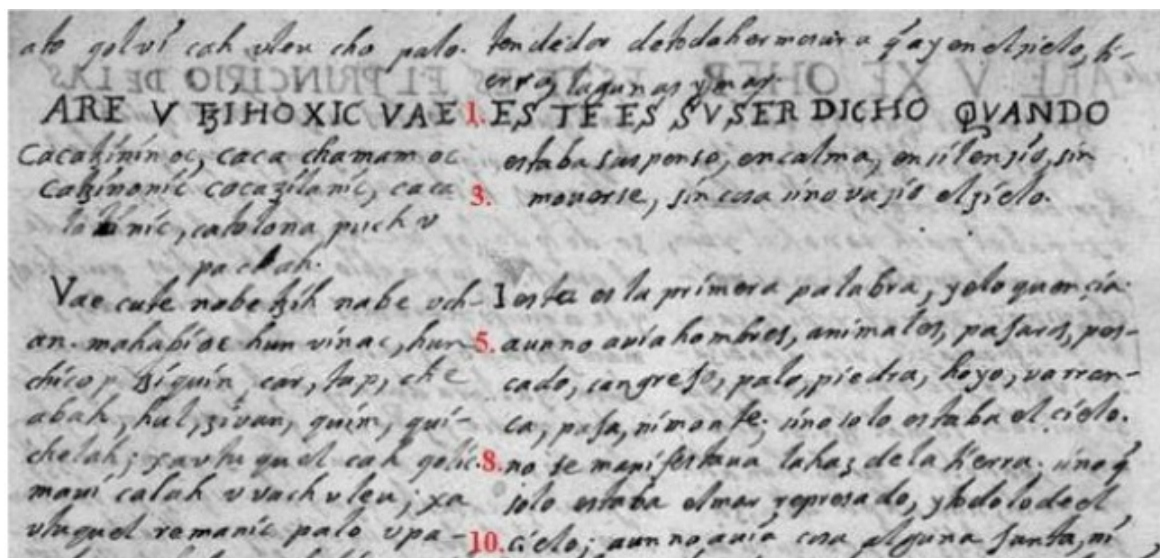 cah vleu cho palo.
ARE V ꜪIHOXIC VAE
oc, caca chamam oc
caca
catolona puch v
pa cah.
Vae cute nabe ꜩih nabe vch-
an. mahabioc hun vinac, hun
chicop, ꜩiquin, car, tap, che
abah, hul, ziван, quim, qui-
chelah; xa vtuquel cah qolic.
mavi calah v vach vleu; xa
vtuquel remanic palo v pa-
de toda hermosura q̃ ay en el sielo, ti-
erra, lagunas y mar.
1. ESTE ES SV SER DICHO QVANDO
estaba suspenso, en calma, en silensio, sin
3. moverse, sin cosa sino vasio el sielo.
I esta es la primera palabra, y eloquençia.
5. aun no avia hombres, animales, pasaros, pes-
cado, cangrejo, palo, piedra, hoyo, varran-
ca, paja, ni monte, sino solo estaba el cielo.
8. no se manifestaua la haz de la tierra. sino q̃
solo estaba el mar represado, y todo lo de el
10. cielo; aun no avia cosa alguna junta, ni